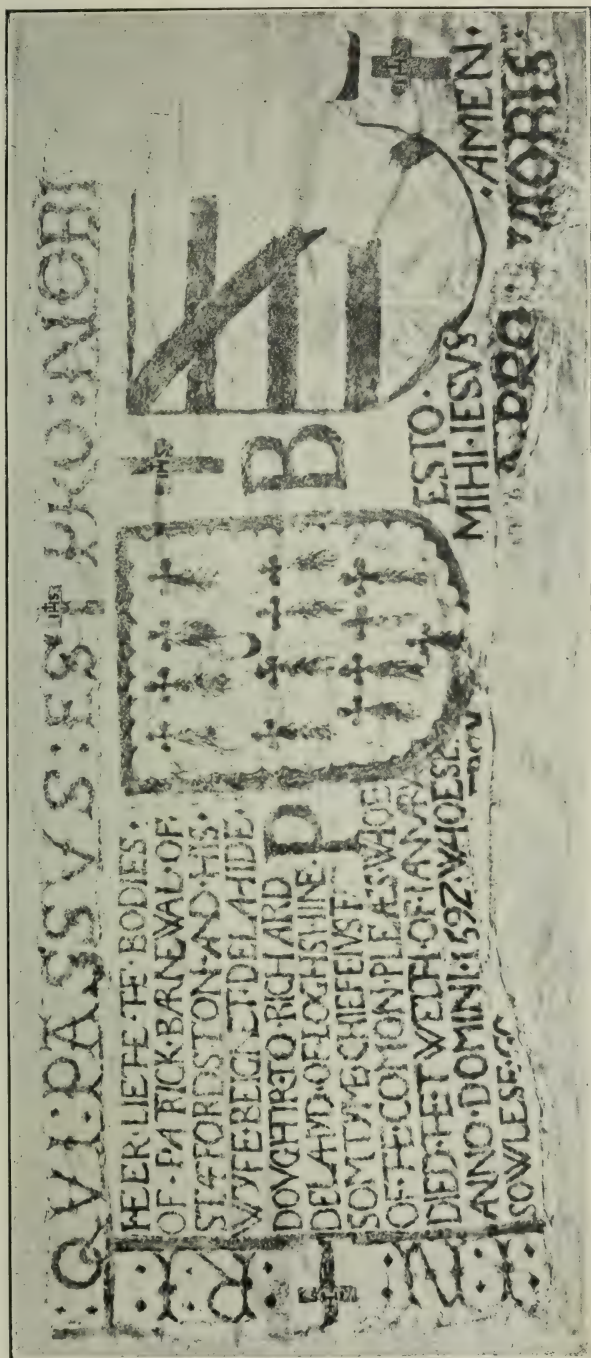 QVI · PASSVS : EST PRO : NOBI
IHS
HEER · LIETHE · THE · BODIES ·
OF · PATRICK · BARNEWAL · OF ·
STAFFORDSTON · AND · HIS ·
WYFE · BEIGNET · DELAHIDE ·
DOVGHTR · TO · RICHARD
DELAHYD · OF · LOGHSHINE ·
SOMTYME · CHIEFE · IVST
OF · THE · COMON · PLEAS · WHOE
DIED · THE · TWELTH · OF · IANVARY
ANNO · DOMINI · 1592 · WHOESE
SOWLESE · GO
P B
IHS
IHS
ESTO ·
MIHI · IESVS
· AMEN ·
PRO